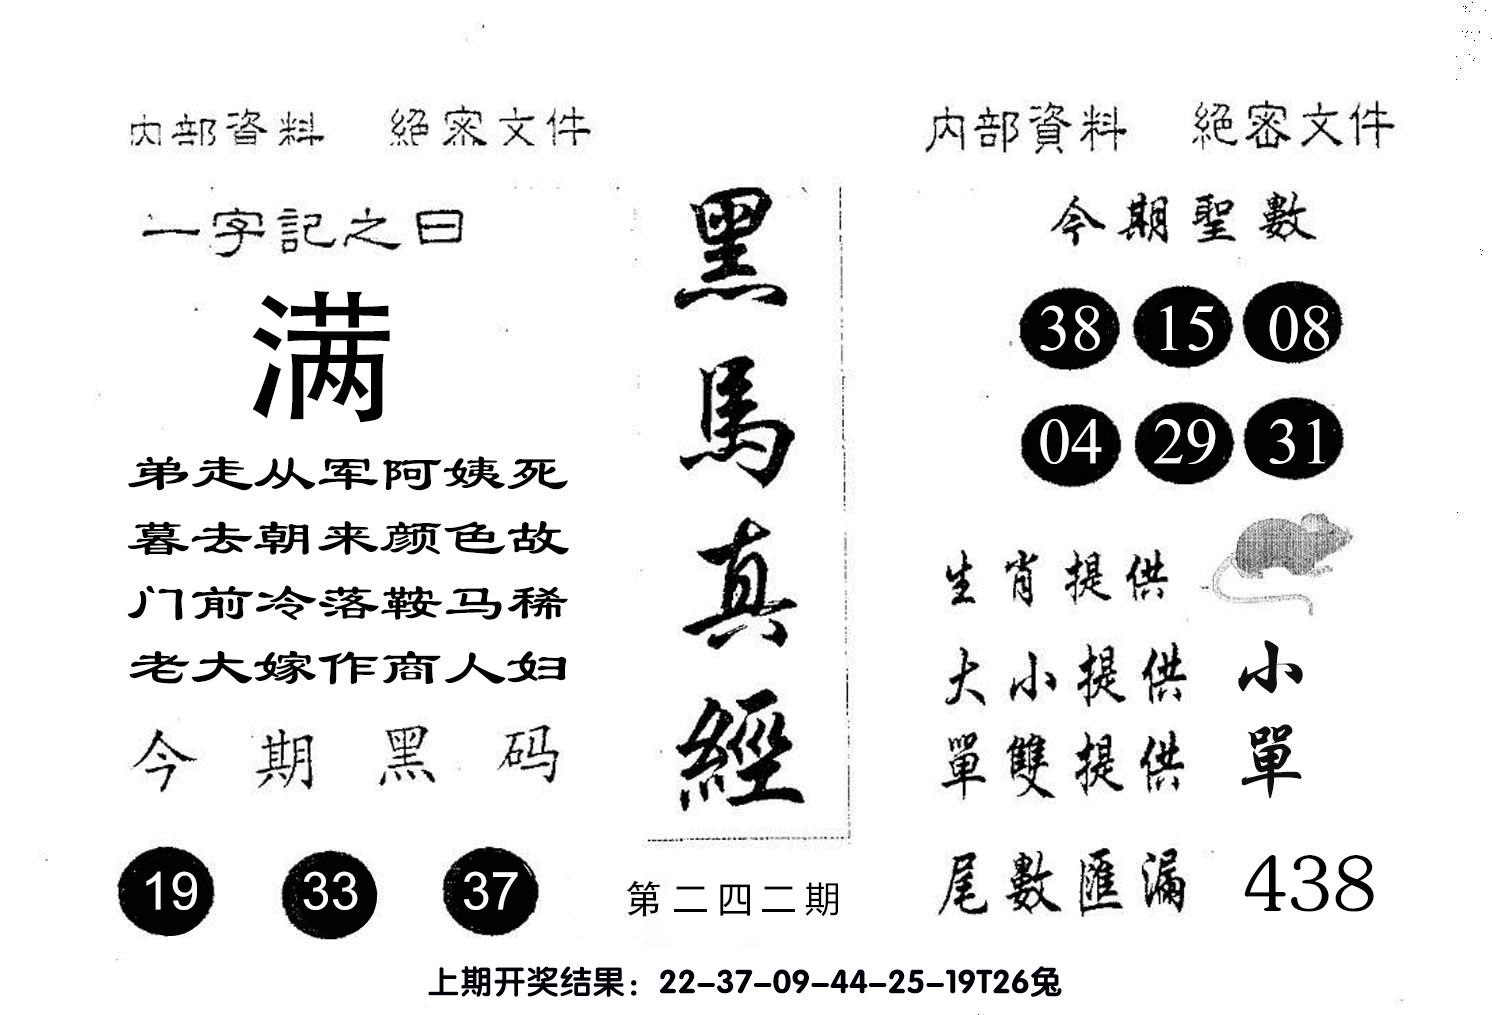 内部資料 絕密文件
一字記之曰
满
弟走从军阿姨死
暮去朝来颜色故
门前冷落鞍马稀
老大嫁作商人妇
今期黑码
19 33 37
黑馬真經
第二四二期
内部資料 絕密文件
今期聖數
38 15 08
04 29 31
生肖提供
大小提供 小
單雙提供 單
尾數匯漏 438
上期开奖结果：22-37-09-44-25-19T26兔